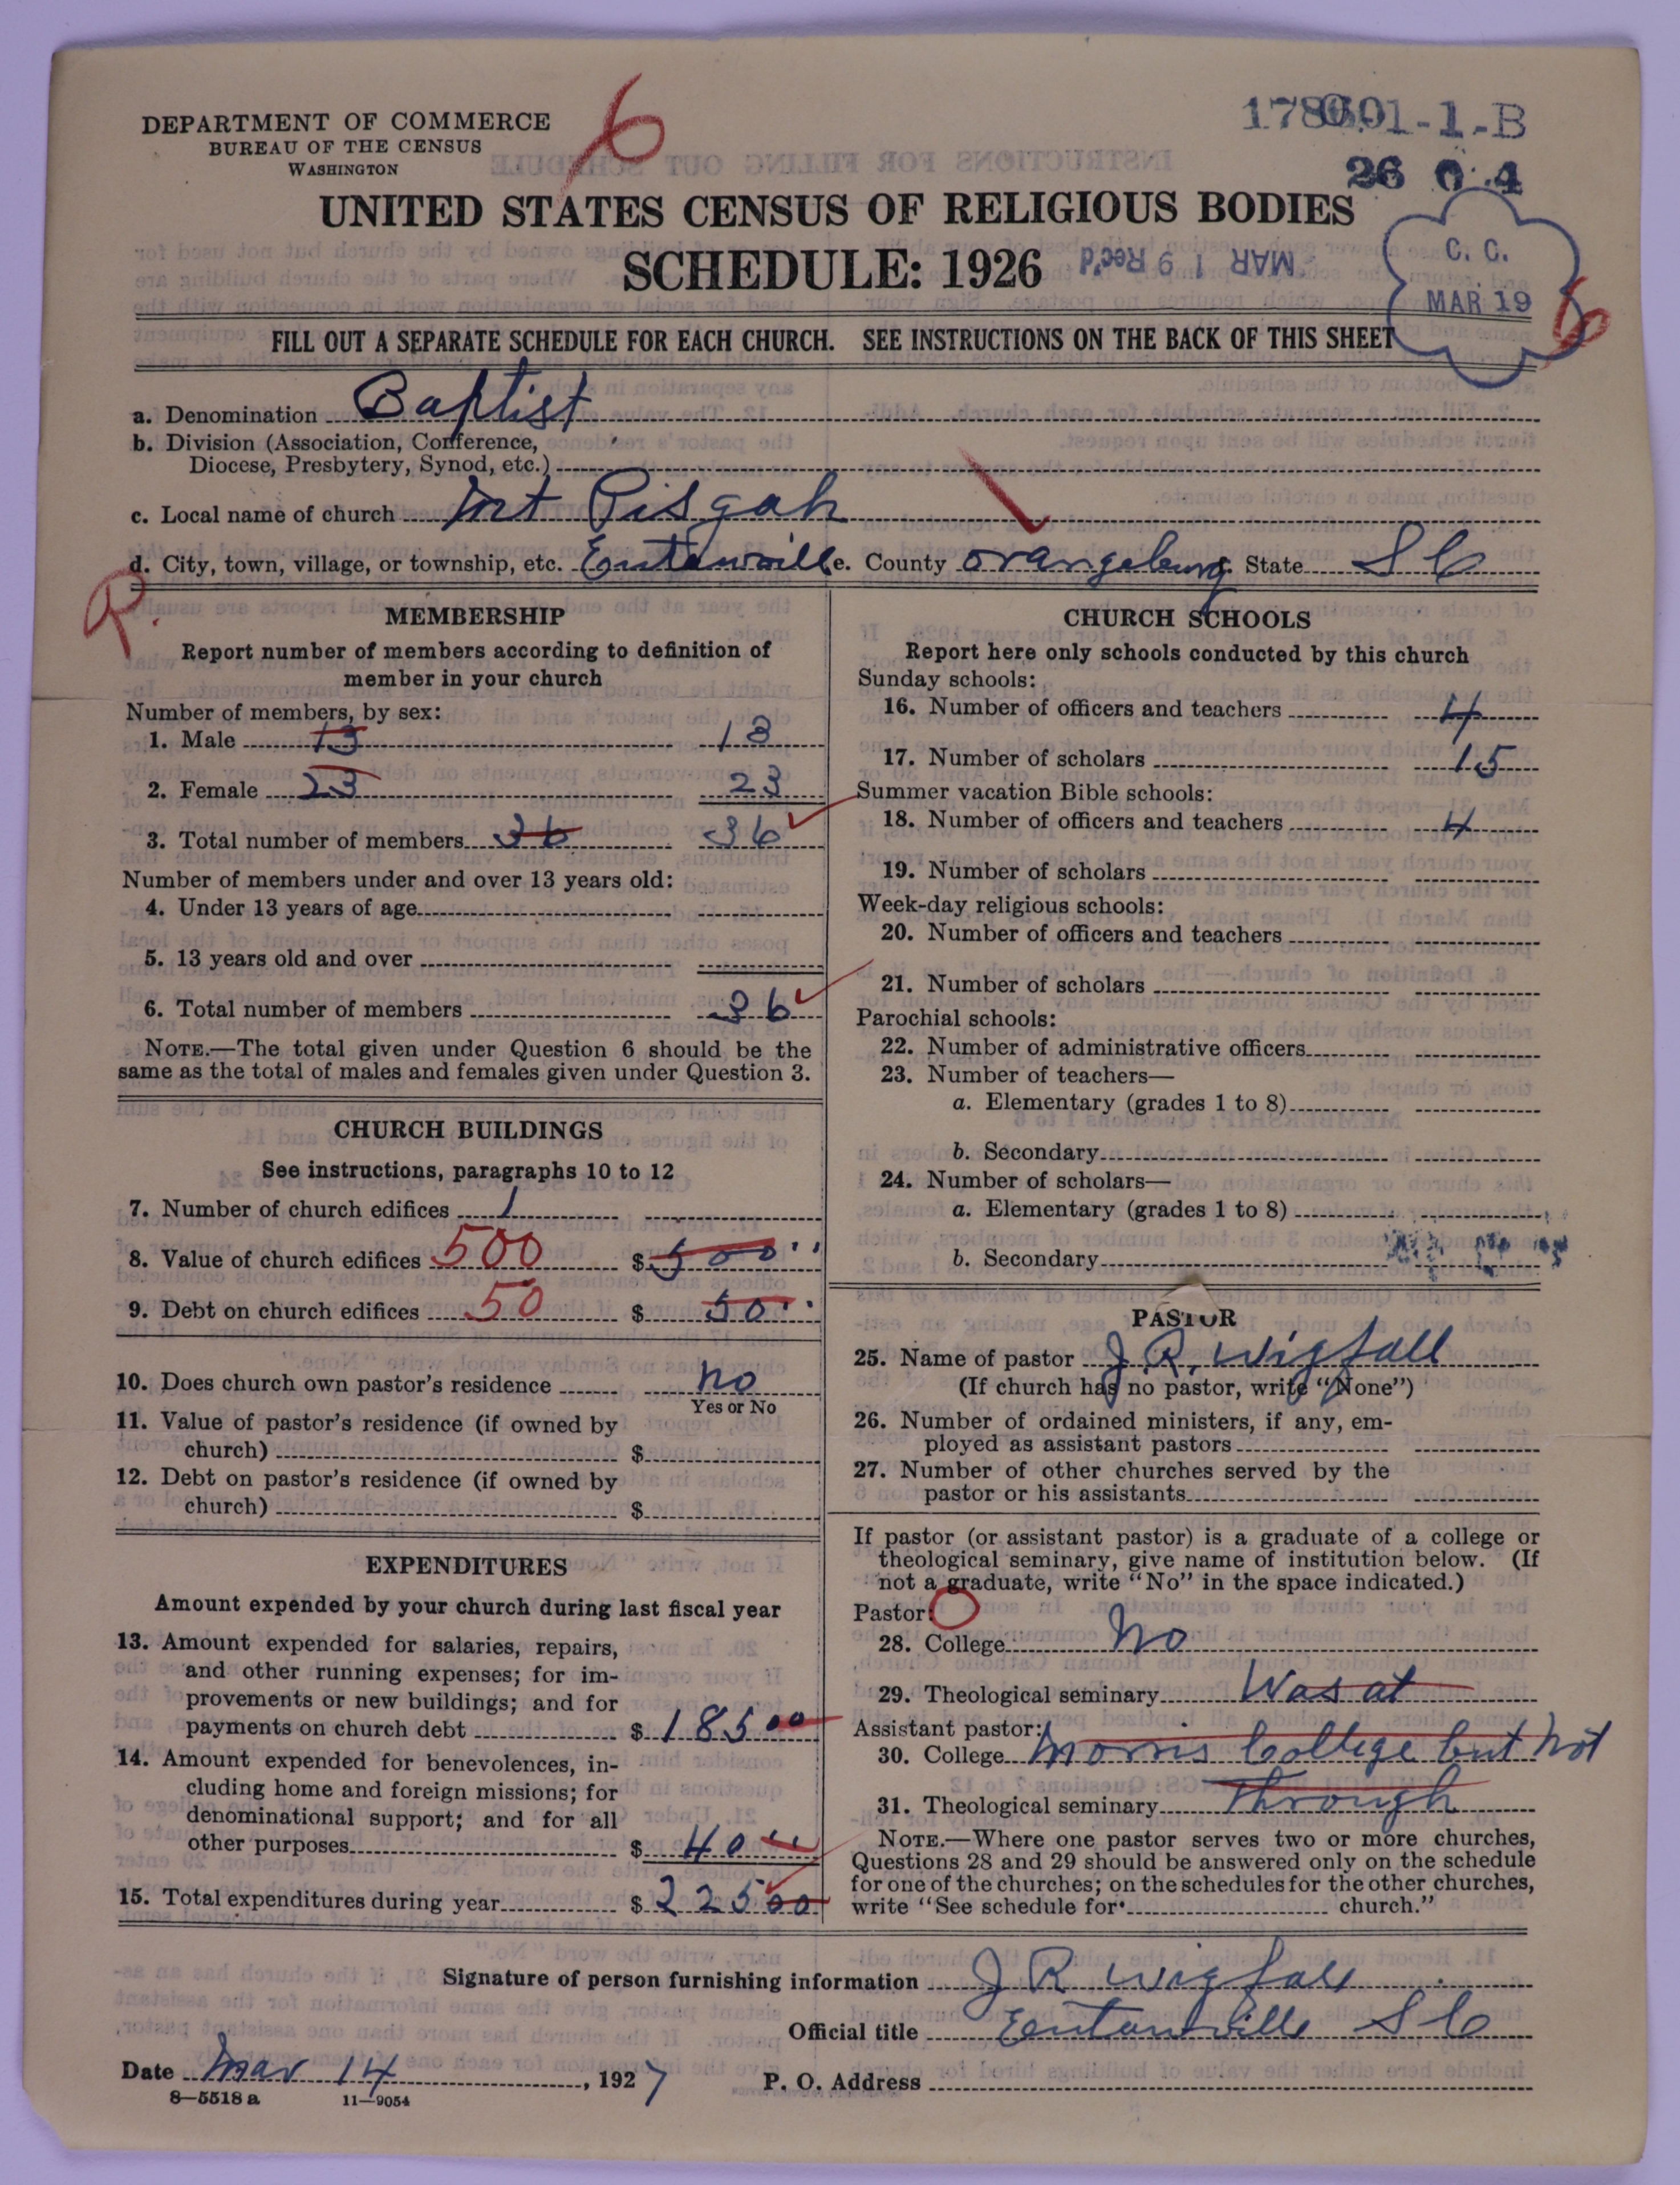 DEPARTMENT OF COMMERCE
BUREAU OF THE CENSUS
WASHINGTON
6
1-1-B
26 0 4
UNITED STATES CENSUS OF RELIGIOUS BODIES
SCHEDULE: 1926
MAR 19 Rec'd
C. C.
MAR 19
6
FILL OUT A SEPARATE SCHEDULE FOR EACH CHURCH. SEE INSTRUCTIONS ON THE BACK OF THIS SHEET
a. Denomination Baptist
b. Division (Association, Conference,
Diocese, Presbytery, Synod, etc.)
c. Local name of church Mt Pisgah
d. City, town, village, or township, etc. Eutawville e. County Orangeburg State S C
R.
MEMBERSHIP
Report number of members according to definition of
member in your church
Number of members, by sex:
1. Male 13 13
2. Female 23 23
3. Total number of members 36 36
Number of members under and over 13 years old:
4. Under 13 years of age
5. 13 years old and over
6. Total number of members 36
NOTE.—The total given under Question 6 should be the
same as the total of males and females given under Question 3.
CHURCH BUILDINGS
See instructions, paragraphs 10 to 12
7. Number of church edifices 1
8. Value of church edifices 500 $ 500
9. Debt on church edifices 50 $ 50
10. Does church own pastor's residence no
Yes or No
11. Value of pastor's residence (if owned by
church) $
12. Debt on pastor's residence (if owned by
church) $
EXPENDITURES
Amount expended by your church during last fiscal year
13. Amount expended for salaries, repairs,
and other running expenses; for im-
provements or new buildings; and for
payments on church debt $ 185 00
14. Amount expended for benevolences, in-
cluding home and foreign missions; for
denominational support; and for all
other purposes $ 40
15. Total expenditures during year $ 225 00
CHURCH SCHOOLS
Report here only schools conducted by this church
Sunday schools:
16. Number of officers and teachers 4
17. Number of scholars 15
Summer vacation Bible schools:
18. Number of officers and teachers 4
19. Number of scholars
Week-day religious schools:
20. Number of officers and teachers
21. Number of scholars
Parochial schools:
22. Number of administrative officers
23. Number of teachers—
a. Elementary (grades 1 to 8)
b. Secondary
24. Number of scholars—
a. Elementary (grades 1 to 8)
b. Secondary
PASTOR
25. Name of pastor J. R. Wigfall
(If church has no pastor, write "None")
26. Number of ordained ministers, if any, em-
ployed as assistant pastors
27. Number of other churches served by the
pastor or his assistants
If pastor (or assistant pastor) is a graduate of a college or
theological seminary, give name of institution below. (If
not a graduate, write "No" in the space indicated.)
Pastor:
28. College No
29. Theological seminary Was at
Assistant pastor:
30. College Morris College but not
31. Theological seminary Through
NOTE.—Where one pastor serves two or more churches,
Questions 28 and 29 should be answered only on the schedule
for one of the churches; on the schedules for the other churches,
write "See schedule for church."
Signature of person furnishing information J R Wigfall
Official title Eutawville S C
Date Mar 14, 1927 P. O. Address
8—5518 a 11—9054